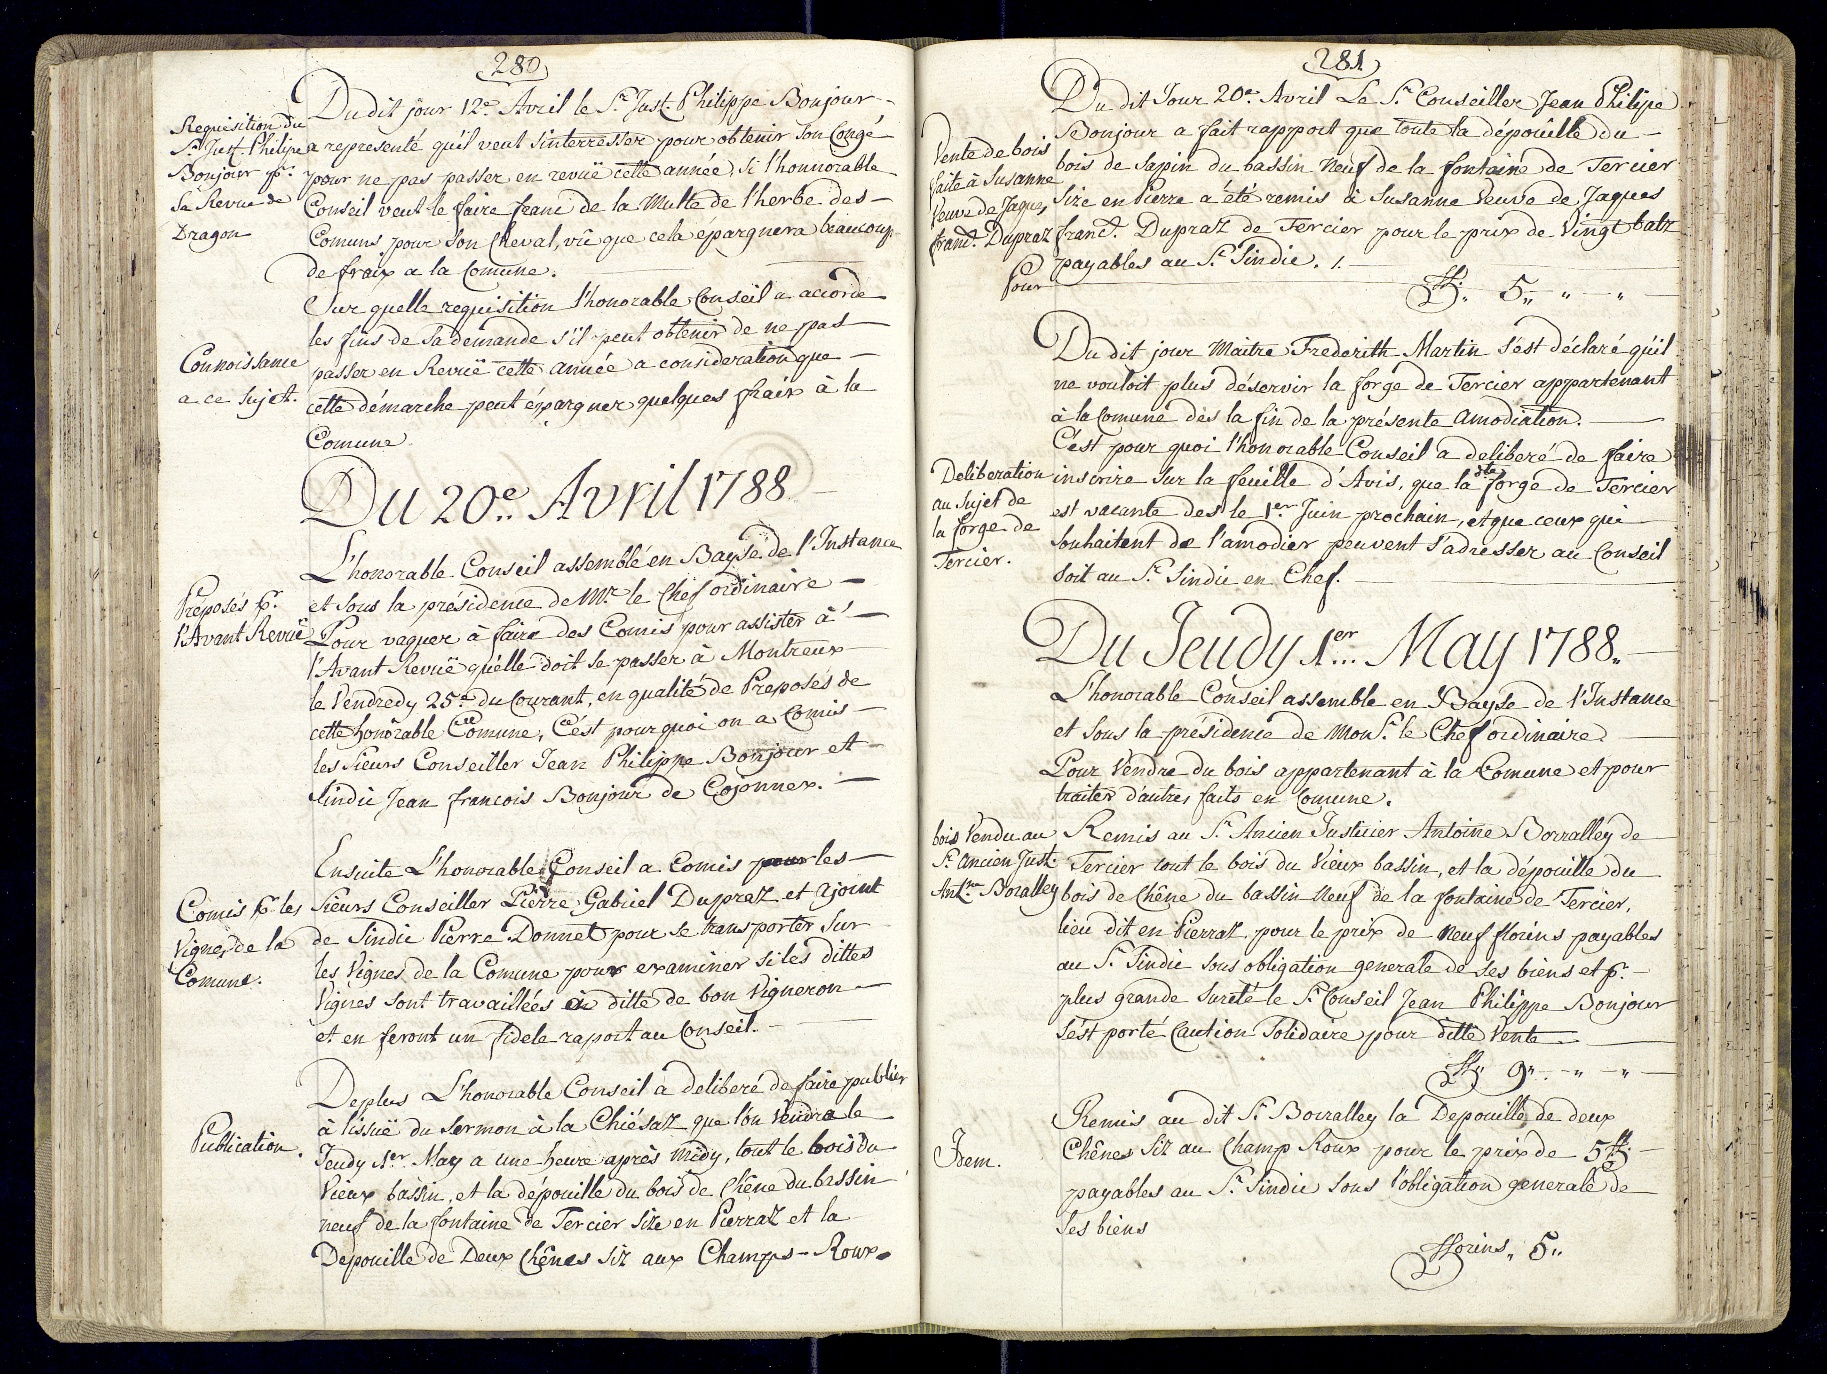 280
Du dit jour 12.e Avril le S.r Just. Philippe Bonjour
Requisition du
S.r Just. Philipe
Bonjour p.r
Sa Revue de
Dragon
a representé qu'il veut s'interresser pour obtenir son Congé
pour ne pas passer en revuë cette année, si l'honnorable
Conseil veut le faire franc de la Multe de l'herbe des
Comuns pour son Cheval, vû que cela épargnera beaucoup
de fraix a la Comune.
Sur quelle requisition l'honorable Conseil a accordé
les fins de Sa demande s'il peut obtenir de ne pas
Connoissance
a ce Sujet.
passer en Revuë cette année a consideration que
cette démarche peut épargner quelques fraix à la
Comune
Du 20.e Avril 1788
L'honorable Conseil assemblé en Bayse de l'Instance
et Sous la présidence de M.r le Chef ordinaire
Preposés p.r
l'Avant Revuë
Pour vaquer à faire des Comis pour assister à
l'Avant Revuë qu'elle doit se passer à Montreux
le Vendredy 25.e du Courant, en qualité de Preposés de
cette honorable Comune, C'est pourquoi on a Comis
les Sieurs Conseiller Jean Philippe Bonjour et
Sindic Jean francois Bonjour de Cojonnex.
Ensuite L'honorable Conseil a Comis pour les
Comis p.r les
Vignes de la
Comune.
Sieurs Conseiller Pierre Gabriel Dupraz et Ajoint
de Sindic Pierre Donnet pour se transporter Sur
les Vignes de la Comune pour examiner si les dittes
Vignes sont travaillées à ditte de bon Vigneron
et en feront un fidele raport au Conseil.
De plus L'honorable Conseil a deliberé de faire publier
à l'issuë du Sermon à la Chiésaz que l'on vendra le
Publication.
Jeudy 1.er May a une heure après midy, tout le bois du
Vieux bassin, et la dépouille du bois de Chêne du bassin
neuf de la fontaine de Tercier Size en Pierraz et la
Depouille de Deux Chênes Siz aux Champs-Roux.
281
Du dit Jour 20.e Avril Le S.r Conseiller Jean Philipe
Bonjour a fait rapport que toute la dépoüille du
Vente de bois
faite à Susanne
Veuve de Jaques
franc.s Dupraz
Pour
bois de Sapin du bassin Neuf de la fontaine de Tercier
Size en Pierre a été remis à Susanne Veuve de Jaques
franc.s Dupraz de Tercier pour le prix de Vingt batz
payables au S.r Sindic. 1.
ff. 5,, ,, ,,
Du dit jour Maitre Frederith Martin s'est déclaré qu'il
ne vouloit plus déservir la forge de Tercier appartenant
à la Comune dès la fin de la présente Amodiation.
C'est pour quoi l'honorable Conseil a deliberé de faire
Deliberation
au Sujet de
la forge de
Tercier.
inscrire Sur la feuille d'Avis, que la dte forge de Tercier
est vacante des le 1.er Juin prochain, et que ceux qui
souhaitent de l'amodier peuvent s'adresser au Conseil
soit au S.r Sindic en Chef.
Du Jeudy 1.er May 1788.
L'honorable Conseil assemble en Bayse de l'Instance
et Sous la présidence de Mon S.r le Chef ordinaire
Pour Vendre du bois appartenant à la Comune et pour
traiter d'autres faits en Comune.
bois Vendu au
S.r Ancien Just.
Ant.ne Boralley
Remis au S.r Ancien Justicier Antoine Borralley de
Tercier tout le bois du Vieux bassin, et la dépouille du
bois de Chêne du bassin Neuf de la fontaine de Tercier,
lieu dit en Pierraz, pour le prix de Neuf florins payables
au S.r Sindic Sous obligation generale de Ses biens et p.r
plus grande Sureté le S.r Conseil Jean Philippe Bonjour
S'est porté Caution Solidaire pour ditte Vente
ff,, 9,, ,, ,,
Remis au dit S.r Borralley la Depouille de deux
Idem.
Chênes Siz au Champ Roux pour le prix de 5 ff.
payables au S.r Sindic Sous l'obligation generale de
Ses biens
fflorins ,, 5,,